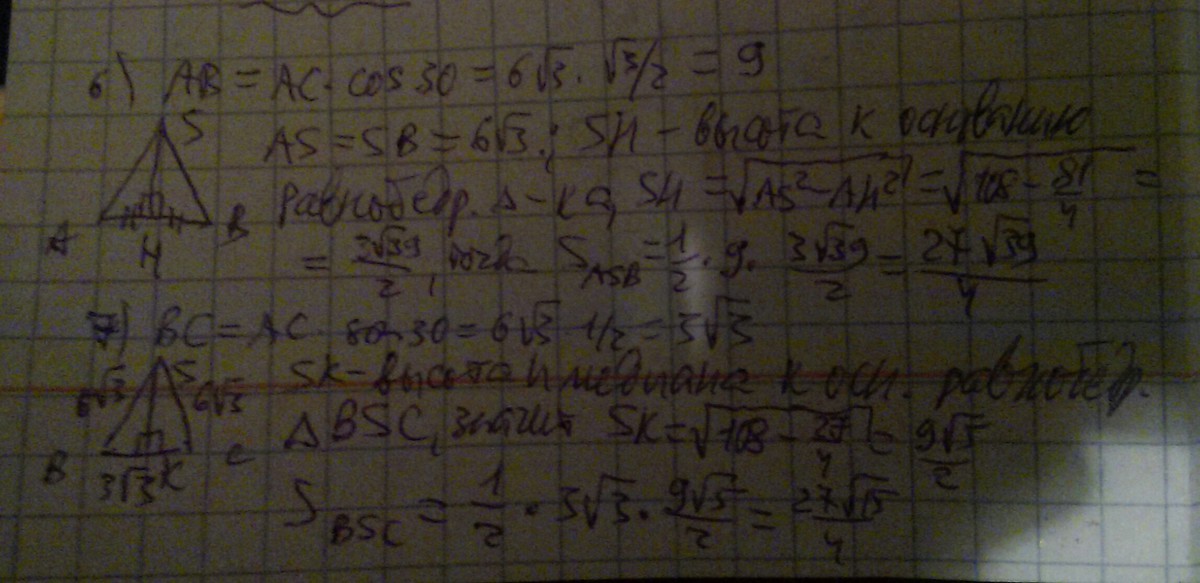 6) AB = AC · cos 30 = 6√3 · √3/2 = 9
S
AS = SB = 6√3; SH – высота к основанию
равнобедр. Δ-ка, SH = √(AS² – AH²) = √(108 – 81/4) =
A H B
= 3√39/2, тогда S_ASB = 1/2 · 9 · 3√39/2 = 27√39/4
7) BC = AC · sin 30 = 6√3 · 1/2 = 3√3
6√3 S 6√3
SK – высота и медиана к осн. равнобедр.
Δ BSC, значит SK = √(108 – 27/4) = 9√5/2
B 3√3 K C
S_BSC = 1/2 · 3√3 · 9√5/2 = 27√15/4